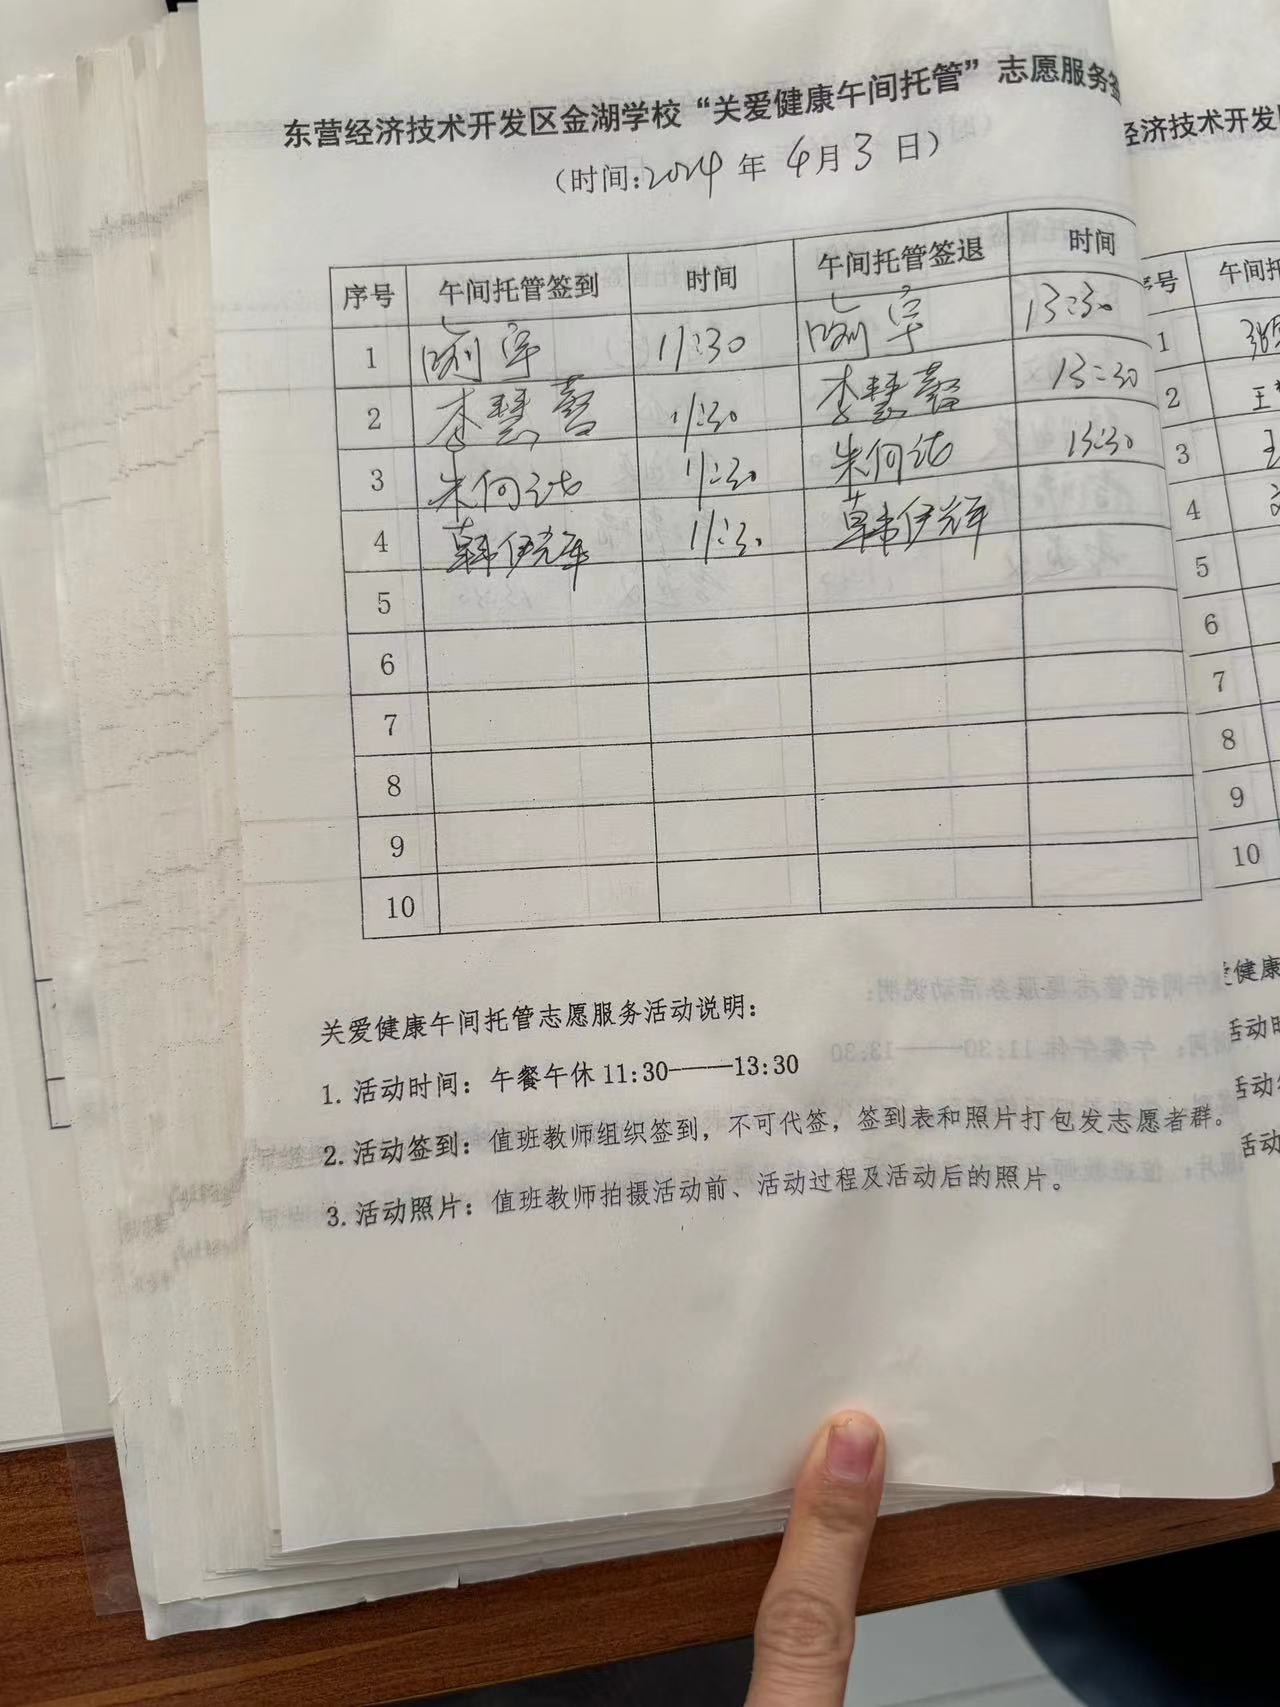 东营经济技术开发区金湖学校“关爱健康午间托管”志愿服务签
(时间:2024年4月3日)
序号 午间托管签到 时间 午间托管签退 时间
1 宇 11:30 宇 13:30
2 李慧馨 11:30 李慧馨 13:30
3 朱何 11:30 朱何 13:30
4 韩伊辉 11:30 韩伊辉
5
6
7
8
9
10
关爱健康午间托管志愿服务活动说明:
1. 活动时间: 午餐午休 11:30——13:30
2. 活动签到: 值班教师组织签到, 不可代签, 签到表和照片打包发志愿者群。
3. 活动照片: 值班教师拍摄活动前、活动过程及活动后的照片。
经济技术开发
序号 午间托
1
2 王
3
4
5
6
7
8
9
10
爱健康
活动时
活动签
活动